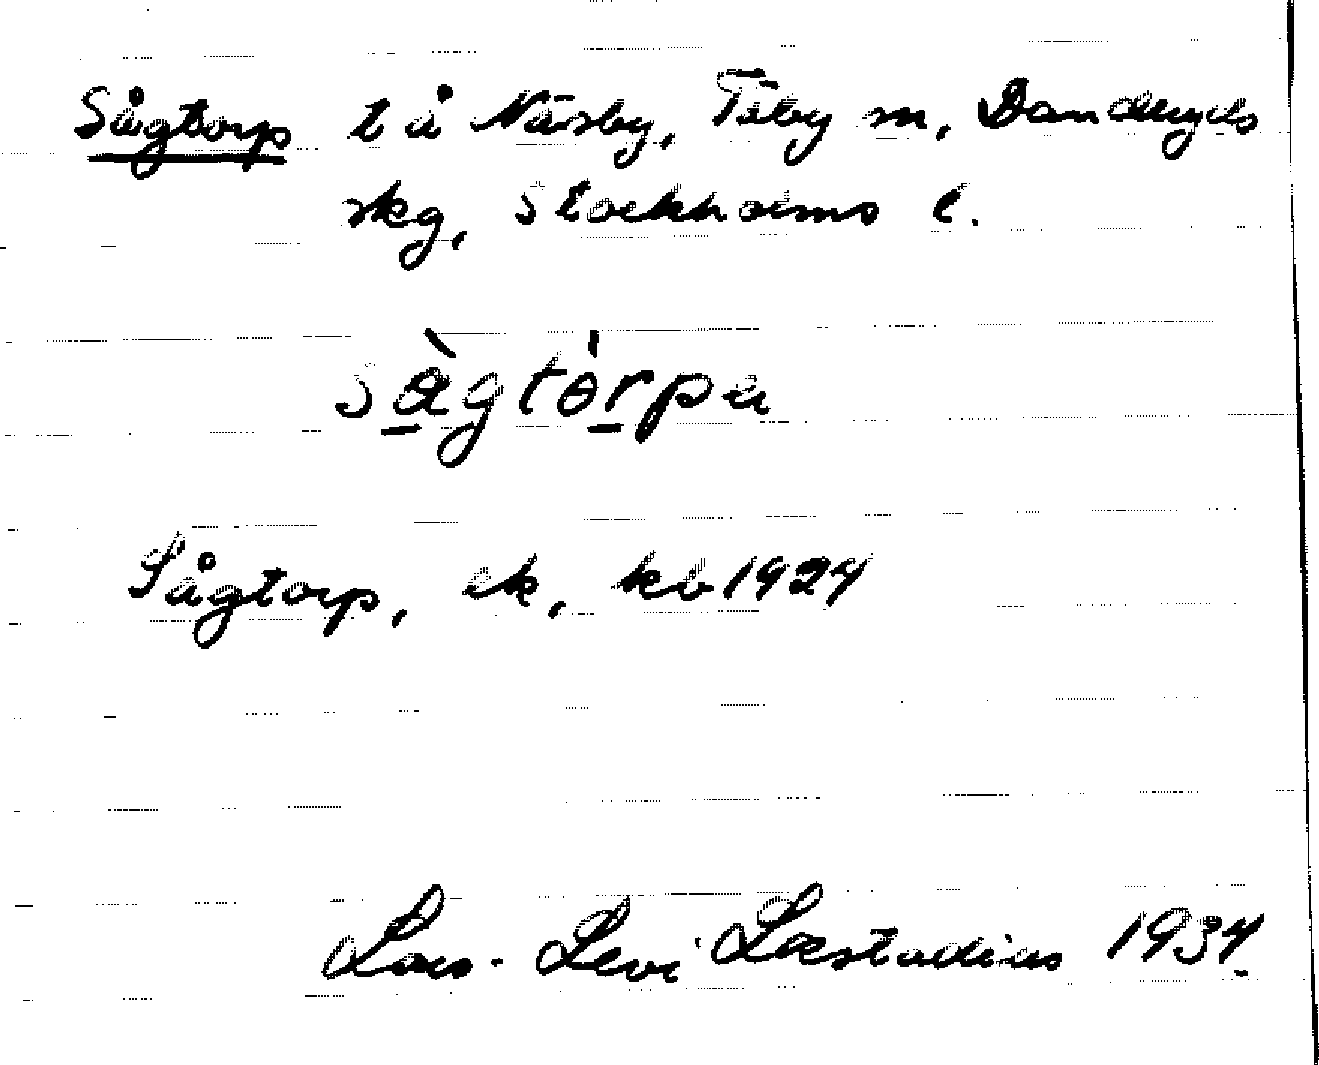 Sågtorp t å Näsby, Täby sn, Danderyds
skg, Stockholms l.
sàgtórpa
Sågtorp, ek, kb 1924
Lars-Levi Læstadius 1934.